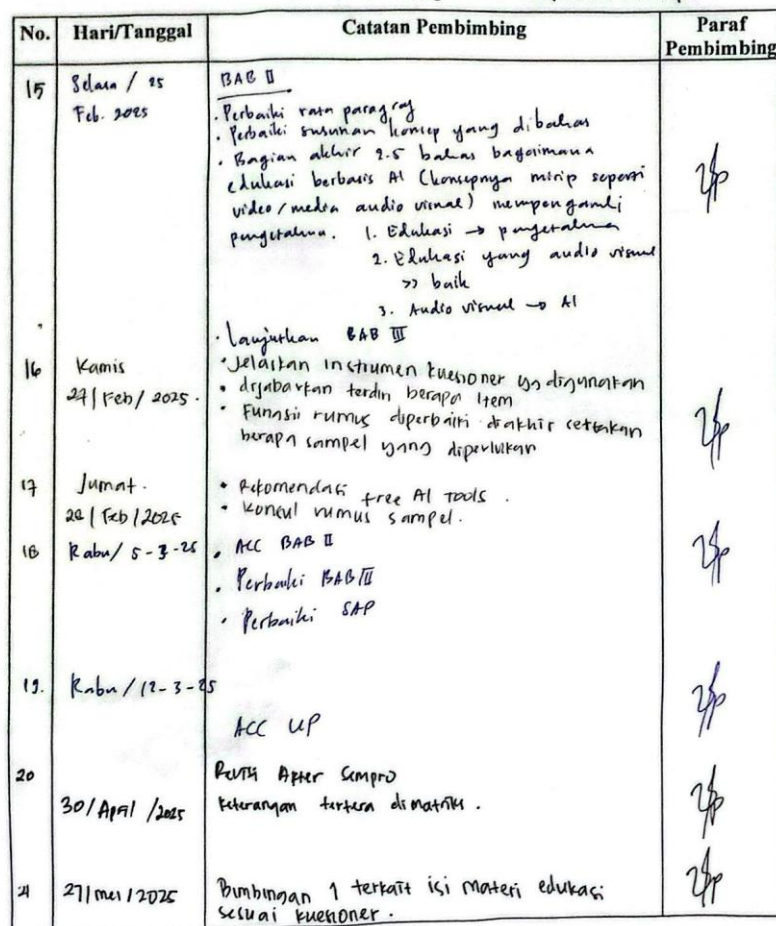 No. Hari/Tanggal Catatan Pembimbing Paraf Pembimbing
15 Selasa / 25 Feb. 2025
BAB II
· Perbaiki rata paragraf
· Perbaiki susunan konsep yang dibahas
· Bagian akhir 2.5 bahas bagaimana
edukasi berbasis AI (konsepnya mirip seperti
video/media audio visual) mempengaruhi
pengetahuan. 1. Edukasi → pengetahuan
2. Edukasi yang audio visual
>> baik
3. Audio visual → AI
· Lanjutkan BAB III
16 Kamis 27/Feb/2025.
• Jelaskan instrumen kuesioner yg digunakan
• dijabarkan terdiri berapa item
• Fungsi rumus diperbaiki diakhir
berapa sampel yang diperlukan
17 Jumat. 28/Feb/2025
• Rekomendasi free AI Tools.
• Konsul rumus sampel.
18 Rabu/ 5-3-25
• ACC BAB II
• Perbaiki BAB III
• Perbaiki SAP
19. Rabu / 12-3-25
ACC UP
20 30/April/2025
Revisi After Sempro
keterangan tertera dimatriks.
21 27/mei/2025
Bimbingan 1 terkait isi materi edukasi
sesuai kuesioner.